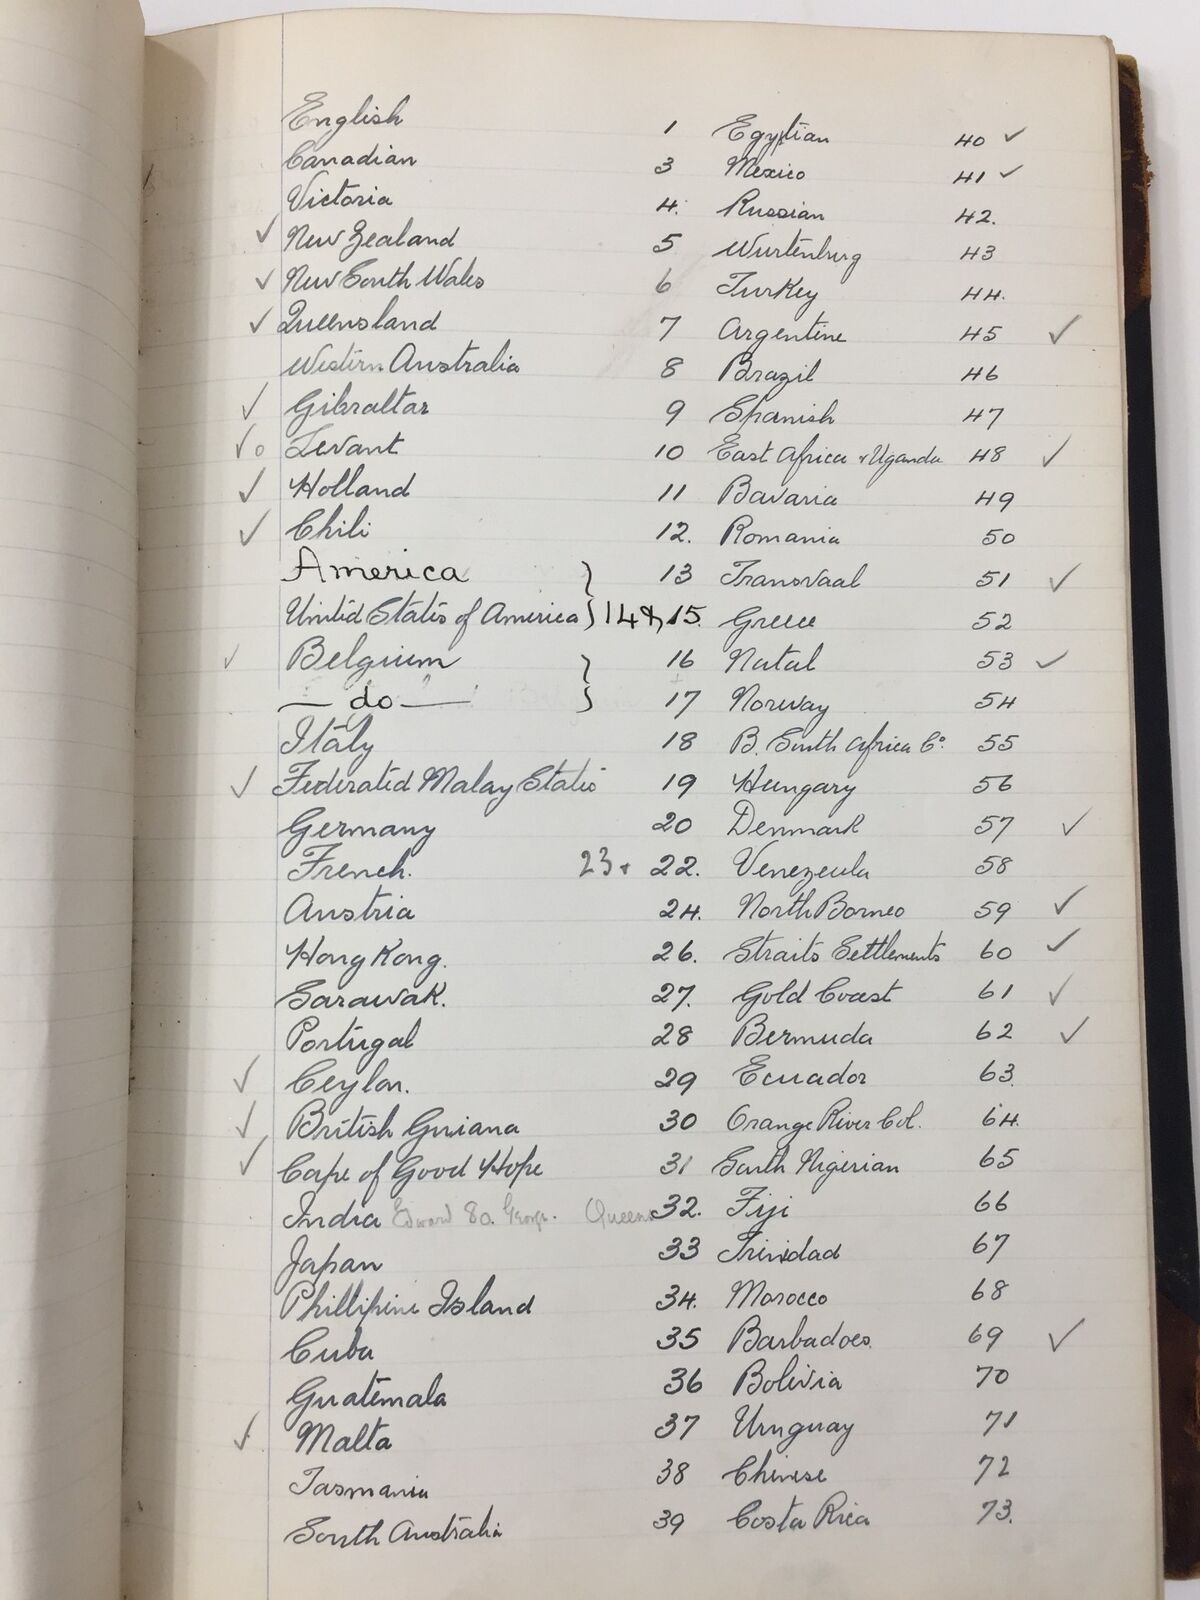 English 1 Egyptian 40 ✓
Canadian 3 Mexico 41 ✓
Victoria 4. Russian 42.
✓ New Zealand 5 Wurtenburg 43
✓ New South Wales 6 Turkey 44.
✓ Queensland 7 Argentine 45 ✓
Western Australia 8 Brazil 46
✓ Gibraltar 9 Spanish 47
✓o Levant 10 East Africa & Uganda 48 ✓
✓ Holland 11 Bavaria 49
✓ Chili 12. Romania 50
America } 13 Transvaal 51 ✓
United States of America } 14 & 15. Greece 52
✓ Belgium } 16 Natal 53 ✓
— do — } 17 Norway 54
Italy 18 B. South Africa Co. 55
✓ Federated Malay States 19 Hungary 56
Germany 20 Denmark 57 ✓
French. 23 + 22. Venezeula 58
Austria 24. North Borneo 59 ✓
Hong Kong. 26. Straits Settlements 60 ✓
Sarawak. 27. Gold Coast 61 ✓
Portugal 28 Bermuda 62 ✓
✓ Ceylon. 29 Ecuador 63
✓ British Guiana 30 Orange River Col. 64.
✓ Cape of Good Hope 31 South Nigerian 65
India Edward 80. George. Queens 32. Fiji 66
Japan 33 Trinidad 67
Phillipine Island 34. Morocco 68
Cuba 35 Barbadoes. 69 ✓
Guatemala 36 Bolivia 70
✓ Malta 37 Uruguay 71
Tasmania 38 Chinese 72
South Australia 39 Costa Rica 73.